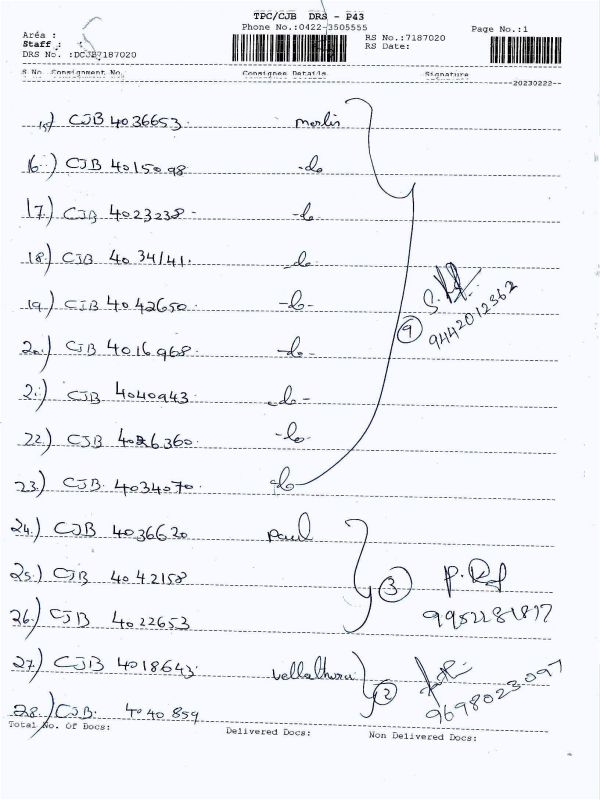 TPC/CJB DRS - P43
Phone No.:0422-3505555
Page No.:1
Aréa :
RS No.:7187020
Staff :
RS Date:
DRS No. :DCJB7187020
S No. Consignment No. Consignee Details Signature
--20230222--
15) CJB 4036653. merlis
16.) CJB 4015098 -do
17.) CJB 4023238- -do
18.) CJB 4034141. do
19.) CJB 4042650. -do-
20.) CJB 4016968. -do-
21) CJB 4040943. -do-
22.) CJB 4026360. -do-
23.) CJB. 4034070. do
9
9442012362
24.) CJB 4036620 paul
25.) CJB 4042158
26.) CJB 4022653
3
9952281817
27.) CJB 4018643.
28.) CJB. 4040859
2
9698023097
Total No. Of Docs: Delivered Docs: Non Delivered Docs: